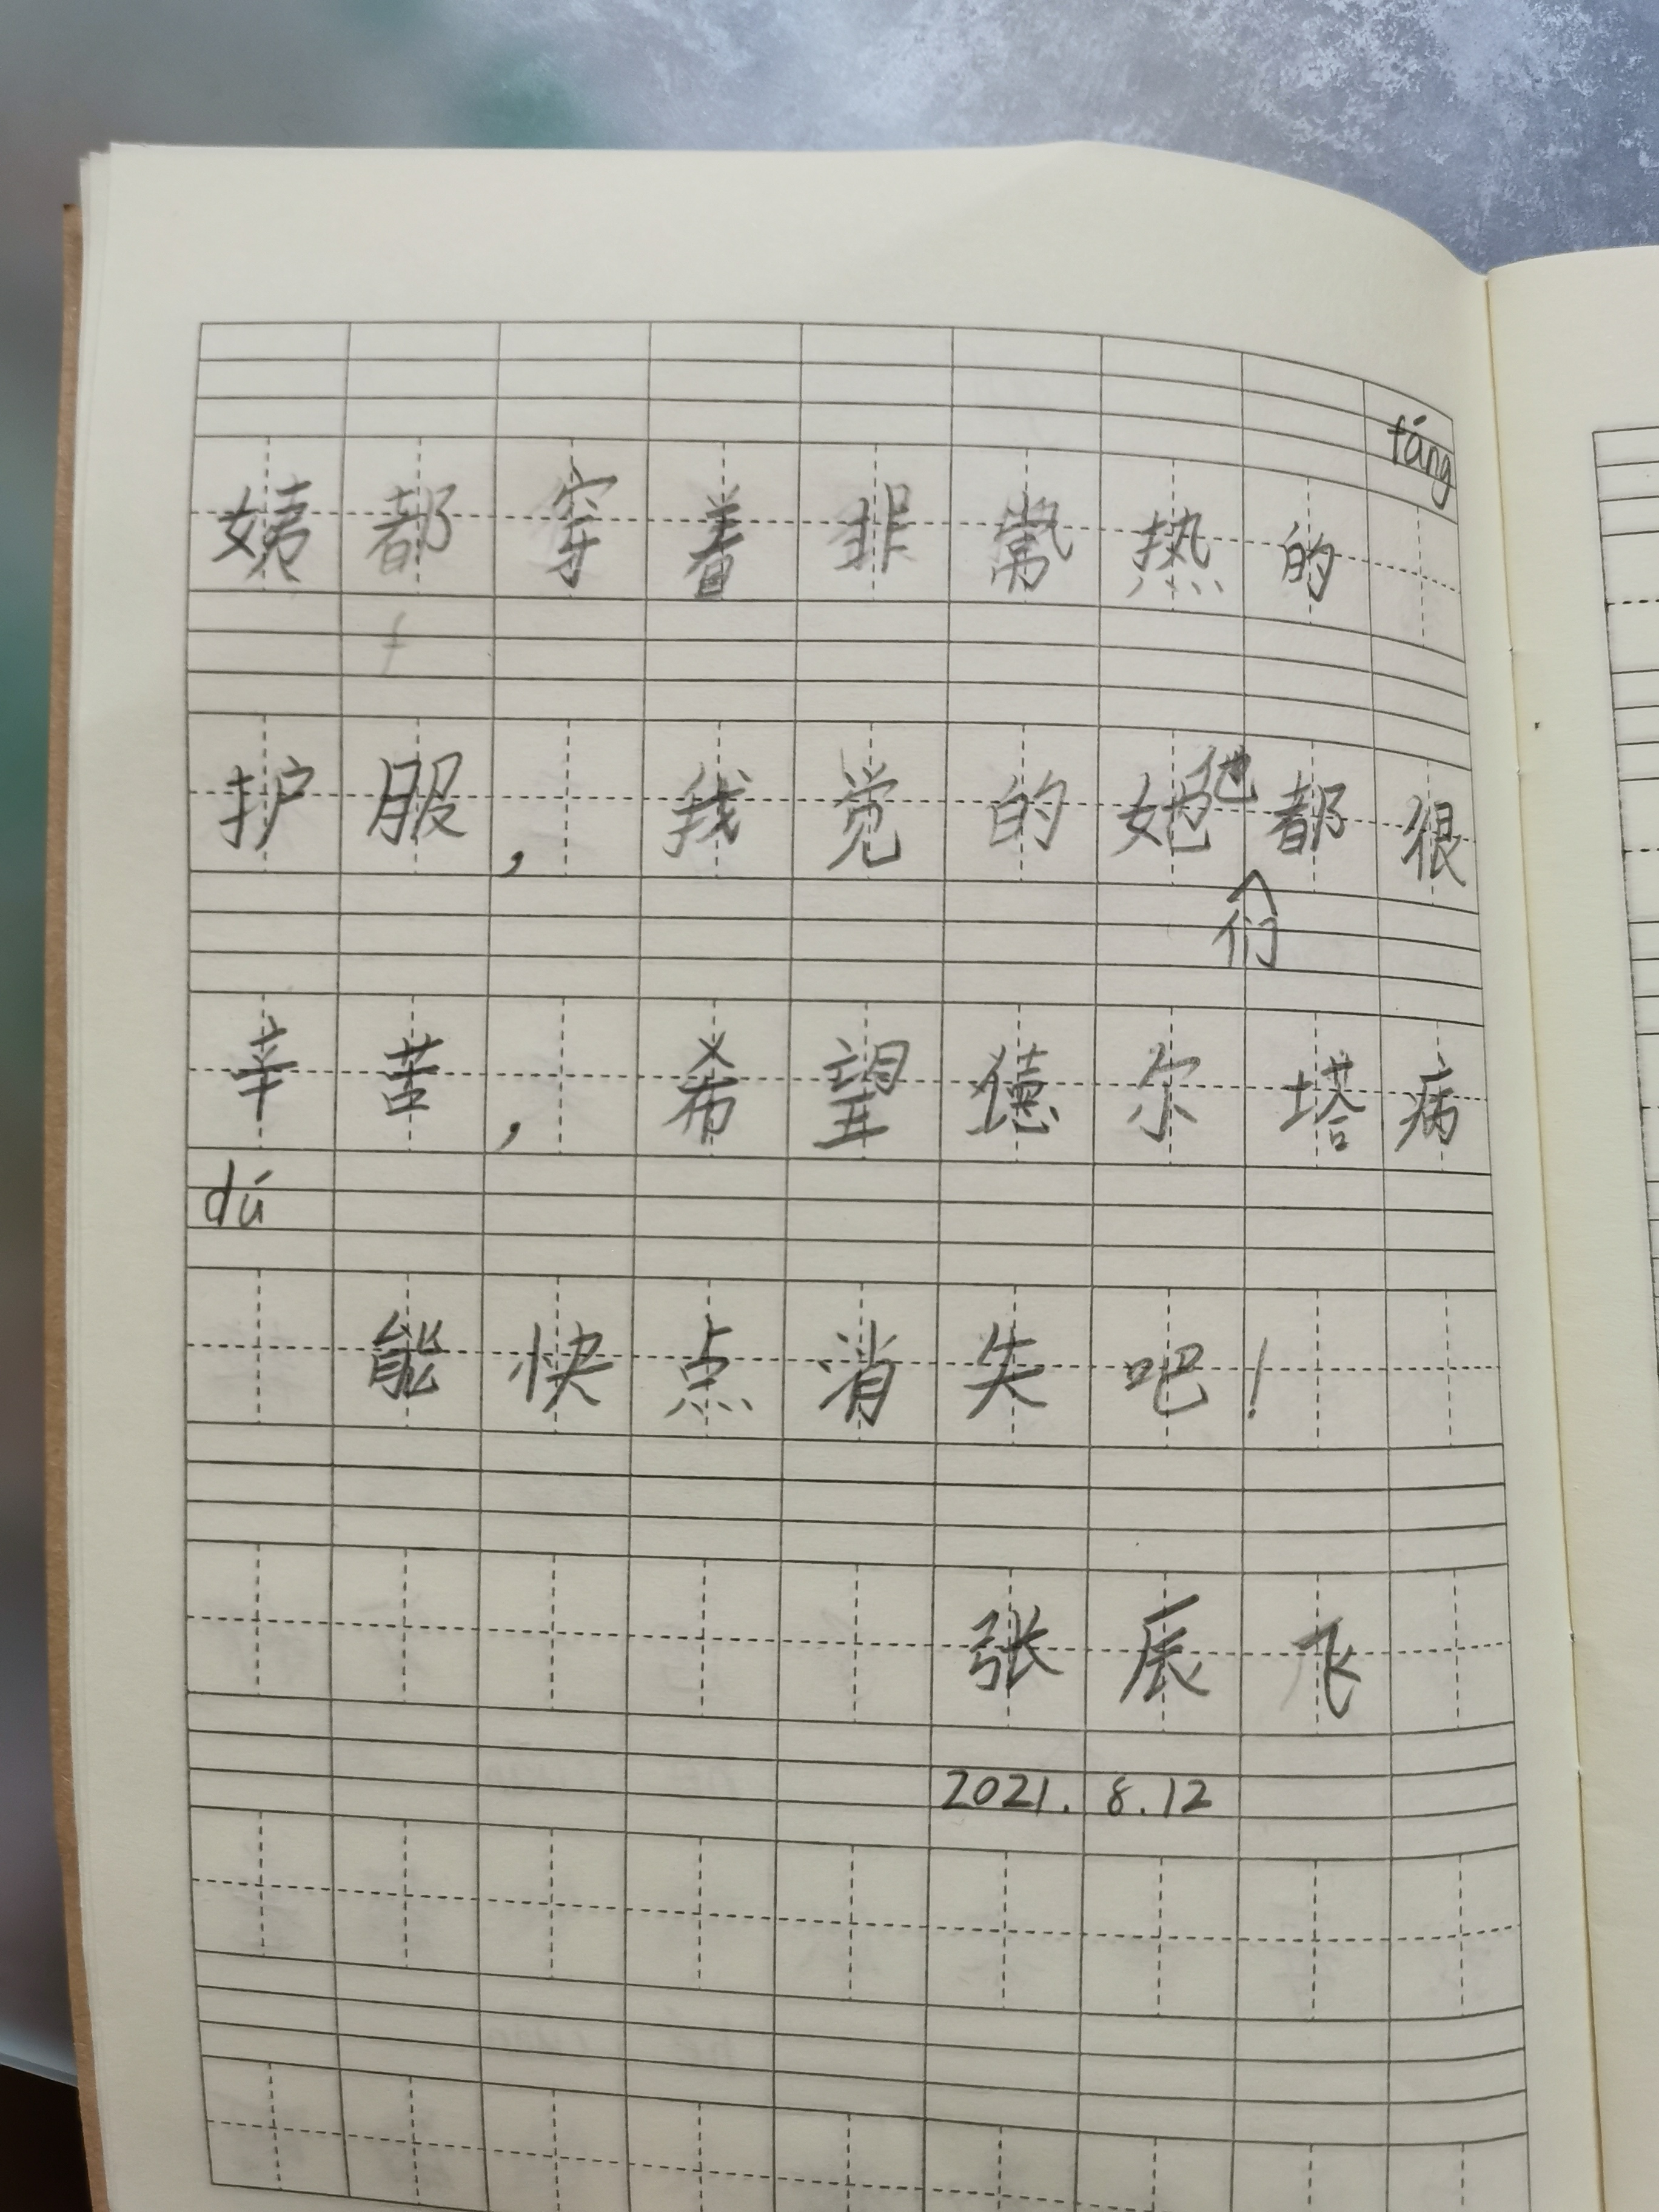 姨都穿着非常热的fáng
护服,我觉的她他们都很
辛苦,希望德尔塔病
dú能快点消失吧!
张辰飞
2021.8.12